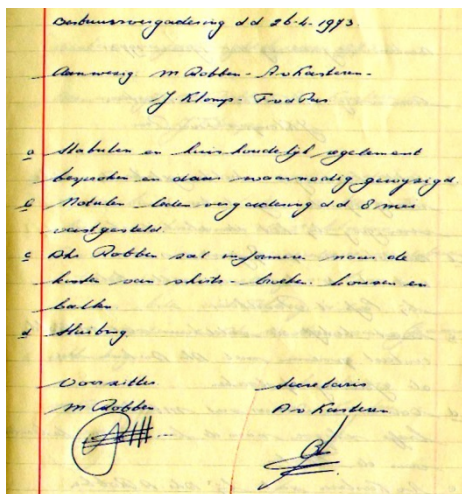 Bestuursvergadering d.d 26-4-1973.
Aanwezig: M Robben - A v Kasteren -
J. Klomp - F v d Pas
a Statuten en huishoudelijk regelement
besproken en daar waarnodig gewysigd.
b Notulen leden vergadering d.d 8 mei
vastgesteld.
c Dhr Robben zal informeren naar de
kosten van shirts - broeken kousen en
ballen
d Sluiting.
Voorzitter Secretaris
M Robben A v Kasteren